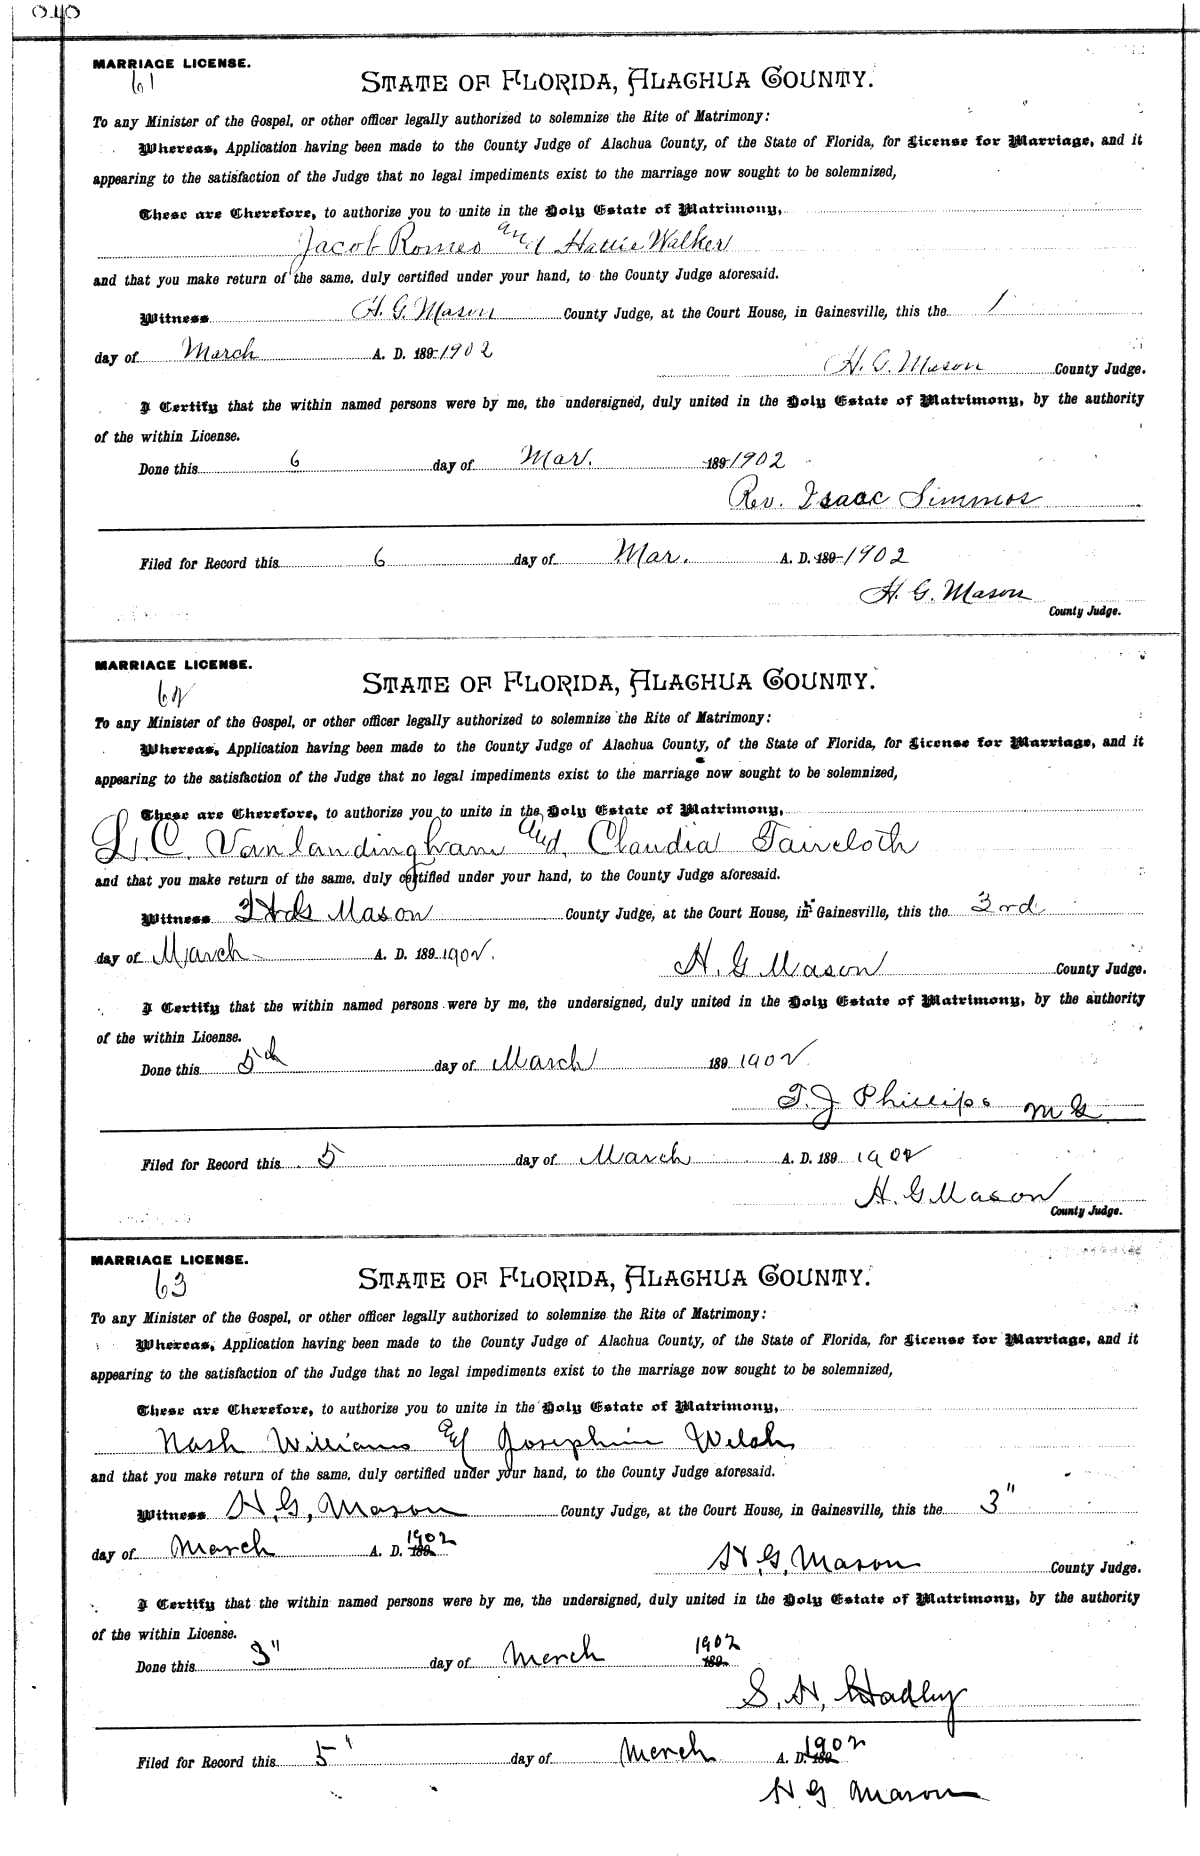 MARRIAGE LICENSE.
61
STATE OF FLORIDA, ALACHUA COUNTY.
To any Minister of the Gospel, or other officer legally authorized to solemnize the Rite of Matrimony:
Whereas, Application having been made to the County Judge of Alachua County, of the State of Florida, for License for Marriage, and it
appearing to the satisfaction of the Judge that no legal impediments exist to the marriage now sought to be solemnized,
These are Therefore, to authorize you to unite in the Holy Estate of Matrimony,
Jacob Romeo and Hattie Walker
and that you make return of the same, duly certified under your hand, to the County Judge aforesaid.
Witness H. G. Mason County Judge, at the Court House, in Gainesville, this the 1
day of March A. D. 189 1902
H. G. Mason County Judge.
I Certify that the within named persons were by me, the undersigned, duly united in the Holy Estate of Matrimony, by the authority
of the within License.
Done this 6 day of Mar. 189 1902
Rev. Isaac Simmos
Filed for Record this 6 day of Mar. A. D. 189 1902
H. G. Mason
County Judge.
MARRIAGE LICENSE.
62
STATE OF FLORIDA, ALACHUA COUNTY.
To any Minister of the Gospel, or other officer legally authorized to solemnize the Rite of Matrimony:
Whereas, Application having been made to the County Judge of Alachua County, of the State of Florida, for License for Marriage, and it
appearing to the satisfaction of the Judge that no legal impediments exist to the marriage now sought to be solemnized,
These are Therefore, to authorize you to unite in the Holy Estate of Matrimony,
L. C. Vanlandingham and Claudia Faircloth
and that you make return of the same, duly certified under your hand, to the County Judge aforesaid.
Witness Mason County Judge, at the Court House, in Gainesville, this the 3rd
day of March A. D. 189 1902.
H. G Mason County Judge.
I Certify that the within named persons were by me, the undersigned, duly united in the Holy Estate of Matrimony, by the authority
of the within License.
Done this 5th day of March 189 1902
T. J Phillips M G
Filed for Record this 5 day of March A. D. 189 1902
H. G Mason
County Judge.
MARRIAGE LICENSE.
63
STATE OF FLORIDA, ALACHUA COUNTY.
To any Minister of the Gospel, or other officer legally authorized to solemnize the Rite of Matrimony:
Whereas, Application having been made to the County Judge of Alachua County, of the State of Florida, for License for Marriage, and it
appearing to the satisfaction of the Judge that no legal impediments exist to the marriage now sought to be solemnized,
These are Therefore, to authorize you to unite in the Holy Estate of Matrimony,
Nash Williams and Josephin Welsh
and that you make return of the same, duly certified under your hand, to the County Judge aforesaid.
Witness H. G. Mason County Judge, at the Court House, in Gainesville, this the 3"
day of March A. D. 189 1902
H. G. Mason County Judge.
I Certify that the within named persons were by me, the undersigned, duly united in the Holy Estate of Matrimony, by the authority
of the within License.
Done this 3" day of March 189 1902
S. H. Hadley
Filed for Record this 5" day of March A. D. 189 1902
H. G. Mason